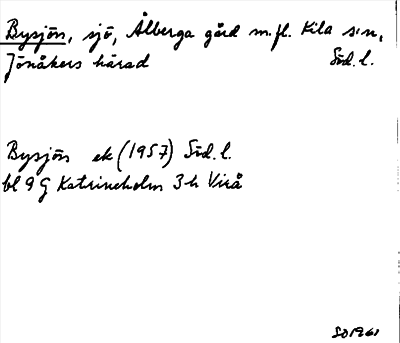 Bysjön, sjö, Ålberga gård m.fl. Kila sn,
Jönåkers härad Söd. l.
Bysjön ek (1957) Söd. l.
bl 9 G Katrineholm 3 h Virå
SO 1961